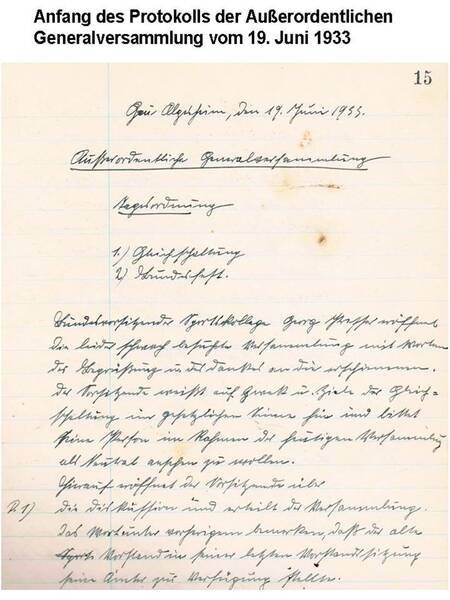 Anfang des Protokolls der Außerordentlichen
Generalversammlung vom 19. Juni 1933
15
Gau Algesheim, den 19. Juni 1933.
Außerordentliche Generalversammlung
Tagesordnung
1.) Gleichschaltung
2.) Bundesfest.
Bundesvorsitzender Sportkollege Georg eröffnet
die leider schwach besuchte Versammlung mit Worten
der Begrüßung u. des Dankes an die erschienenen.
Der Vorsitzende weißt auf Zweck u. Ziele der Gleich=
schaltung im gesetzlichen Sinne hin und bittet
seine Person im Rahmen der heutigen Versammlung
als Neutral ansehen zu wollen.
Hierauf eröffnet der Vorsitzende über
P. 1) die Diskussion und erteilt der Versammlung
das Wort unter vorherigem bemerken, daß der alte
Vorstand in seiner letzten Vorstandssitzung
seine Ämter zur Verfügung stellte.